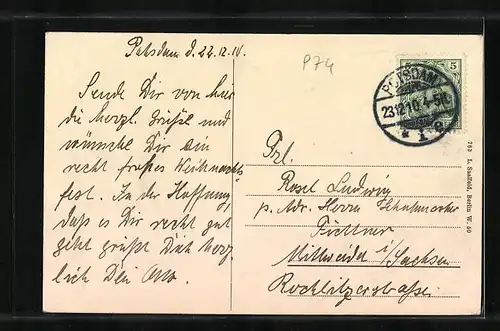 Potsdam d. 22.12.10.
P74
Sende Dir von hier
die herzl. Grüße und
wünsche Dir ein
recht frohes Weihnachts
fest. In der Hoffnung
daß es Dir recht gut
geht grüßt Dich herz
lich Dein Otto.
5
POTSDAM
23.12.10. 4-5N.
* 1 g
Frl.
Rosel Ludwig
p. Adr. Herrn
Mittweida i/Sachsen
Rochlitzerstraße
763 L. Saalfeld, Berlin W. 50